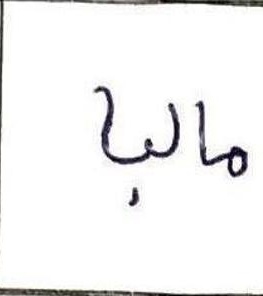 ماليا